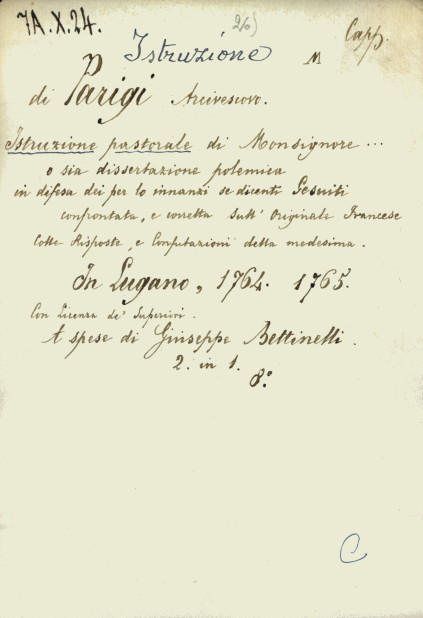 7A.X.24.
26)
Capp.
Istruzione
M
di Parigi Arcivescovo.
Istruzione pastorale di Monsignore ...
o sia dissertazione polemica
in difesa dei per lo innanzi se dicenti Gesuiti
confrontata, e corretta sull' Originale Francese
Colle Risposte, e Confutazioni della medesima.
In Lugano, 1764. 1765.
Con Licenza de' Superiori.
A spese di Giuseppe Bettinelli.
2. in 1.
8.º
C